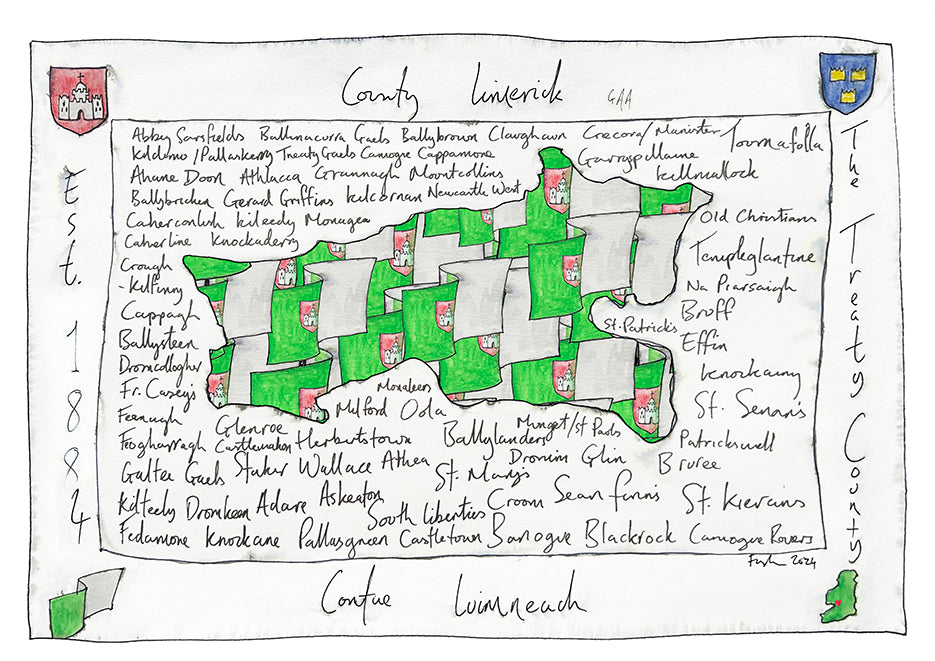 County Limerick GAA
Abbey Sarsfields Ballinacurra Gaels Ballybrown Claughaun Crecora/Manister Tournafulla
Kildimo/Pallaskenry Treaty Gaels Camogue Cappamore Garryspillane
Ahane Doon Athlacca Grannagh Mountcollins Killmallock
Ballybricken Gerard Griffins Kilcornan Newcastle West
Caherconlish Kileedy Monagea Old Christians
Caherline Knockaderry Templeglantine
Croagh
-Kilfinny Na Piarsaigh
Cappagh St. Patrick's Bruff
Ballysteen Effin
Dromcollogher Knockainy
Fr. Casey's Monaleen St. Senan's
Feenagh Glenroe Milford Oola Mungret/St Pauls
Feoghanagh Castlemahon Herbertstown Ballylanders Patrickswell
Galtee Gaels Staker Wallace Athea Dromin Glin Bruree
St. Mary's
Kilteely Dromkeen Adare Askeaton Croom Sean Finns St. Kierans
South Liberties
Fedamore Knockane Pallasgreen Castletown Banogue Blackrock Camogue Rovers
2024
Est. 1884
The Treaty County
Contae Luimneach